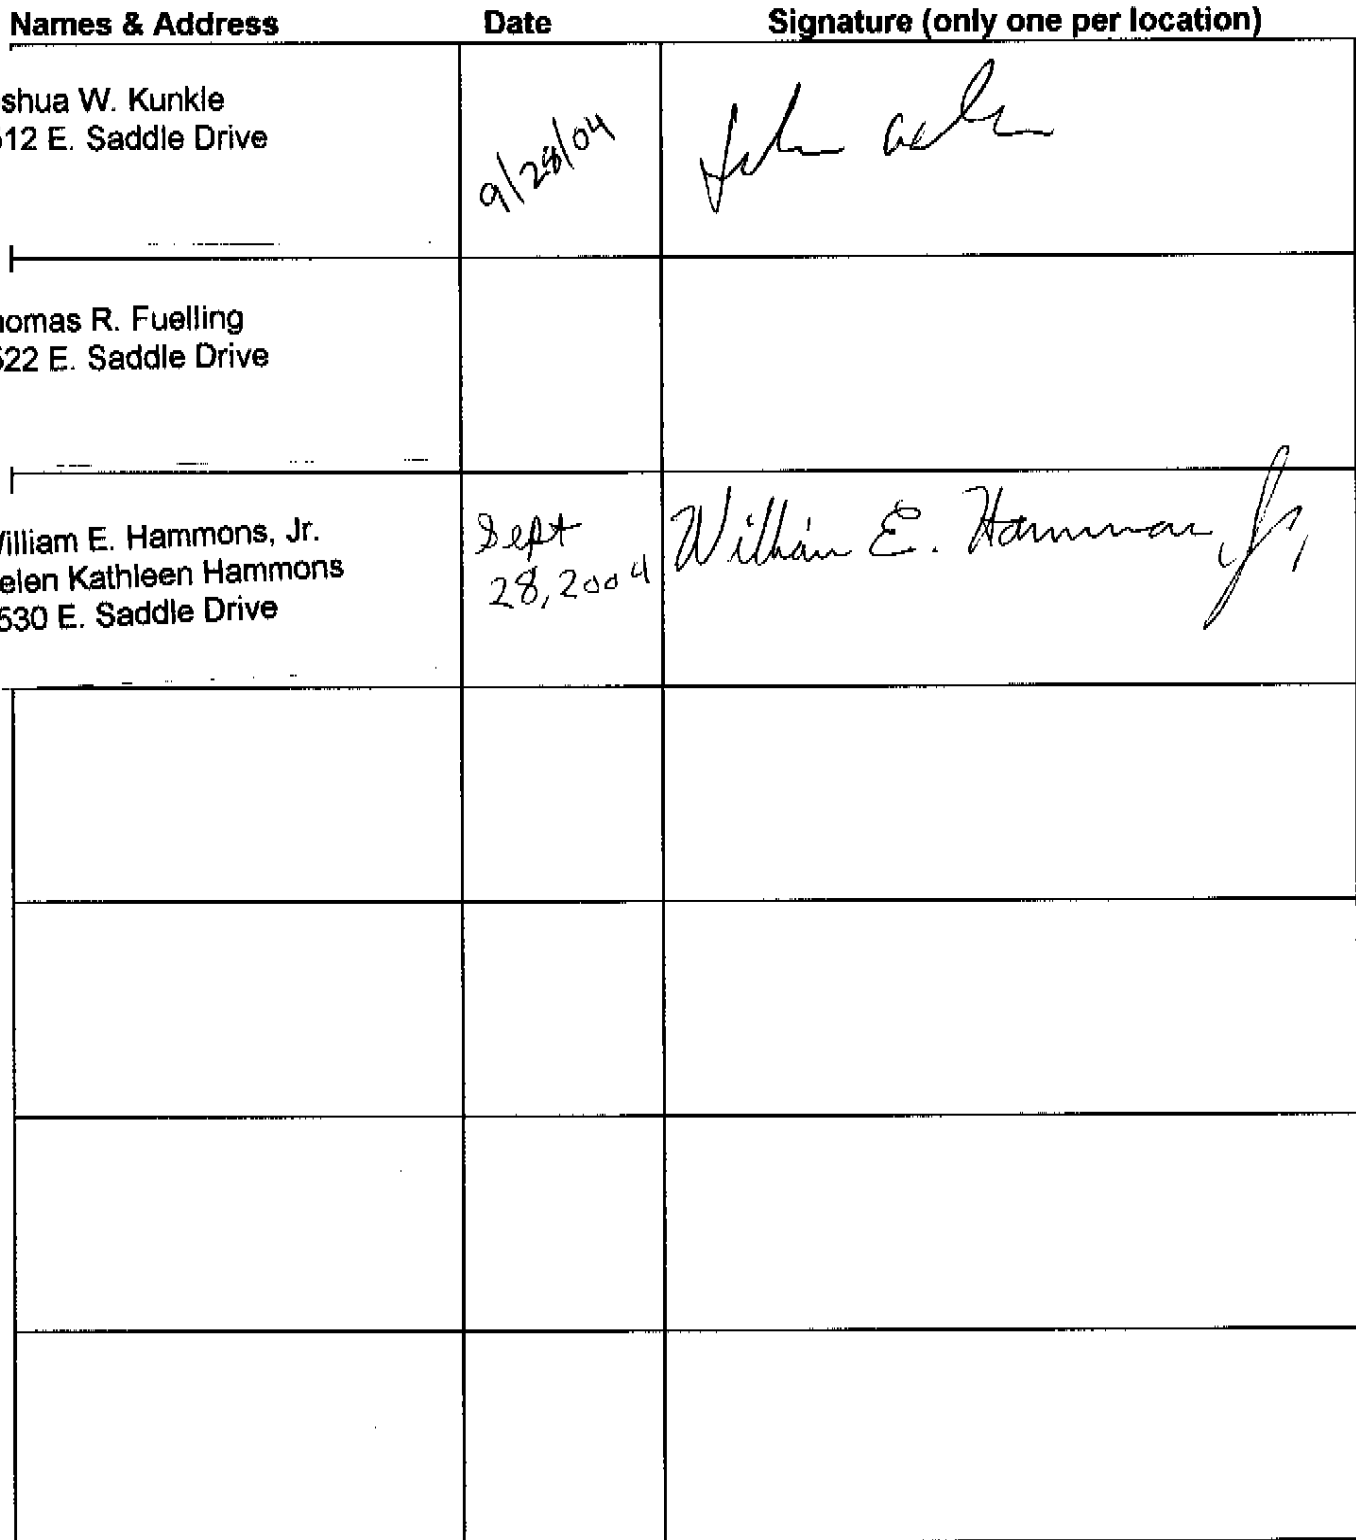 Names & Address Date Signature (only one per location)
shua W. Kunkle
512 E. Saddle Drive
9/28/04
omas R. Fuelling
522 E. Saddle Drive
William E. Hammons, Jr.
elen Kathleen Hammons
530 E. Saddle Drive
Sept
28, 2004
William E. Hammons, Jr,